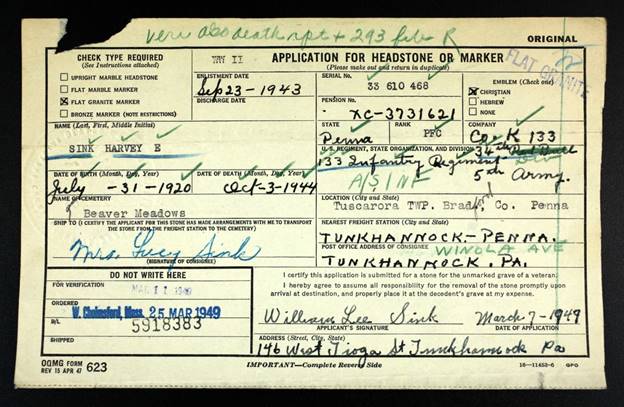 veri also death rpt + 293 file R
ORIGINAL
CHECK TYPE REQUIRED
(See Instructions attached)
WW II
APPLICATION FOR HEADSTONE OR MARKER
(Please make out and return in duplicate)
UPRIGHT MARBLE HEADSTONE
FLAT MARBLE MARKER
FLAT GRANITE MARKER
BRONZE MARKER (NOTE RESTRICTIONS)
ENLISTMENT DATE
Sep 23-1943
DISCHARGE DATE
SERIAL NO.
33 610 468
PENSION NO.
XC-3731621
EMBLEM (Check one)
CHRISTIAN
HEBREW
NONE
FLAT GRANITE
NAME (Last, First, Middle Initial)
SINK HARVEY E
STATE
Penna
RANK
PFC
COMPANY
Co-K 133
U. S. REGIMENT, STATE ORGANIZATION, AND DIVISION
34th Red Bull Div
133 Infantry Regiment
5th Army.
A/S INF
DATE OF BIRTH (Month, Day, Year)
July -31-1920
DATE OF DEATH (Month, Day, Year)
Oct-3-1944
NAME OF CEMETERY
Beaver Meadows
LOCATION (City and State)
Tuscarora TWP. Bradford, Co. Penna
SHIP TO (I CERTIFY THE APPLICANT FOR THIS STONE HAS MADE ARRANGEMENTS WITH ME TO TRANSPORT
THE STONE FROM THE FREIGHT STATION TO THE CEMETERY)
Mrs. Lucy Sink
(SIGNATURE OF CONSIGNEE)
NEAREST FREIGHT STATION (City and State)
TUNKHANNOCK-PENNA.
POST OFFICE ADDRESS OF CONSIGNEE
WINOLA AVE
TUNKHANNOCK, PA.
DO NOT WRITE HERE
FOR VERIFICATION
MAR 11 1949
ORDERED
W. Chelmsford, Mass. 25 MAR 1949
B/L
5918383
SHIPPED
I certify this application is submitted for a stone for the unmarked grave of a veteran.
I hereby agree to assume all responsibility for the removal of the stone promptly upon
arrival at destination, and properly place it at the decedent's grave at my expense.
William Lee Sink March 7-1949
APPLICANT'S SIGNATURE DATE
ADDRESS (Street, City, State)
146 West Tioga St Tunkhannock Pa
OQMG FORM
REV 15 APR 47
623
IMPORTANT—Complete Reverse Side
16—11452-6 GPO